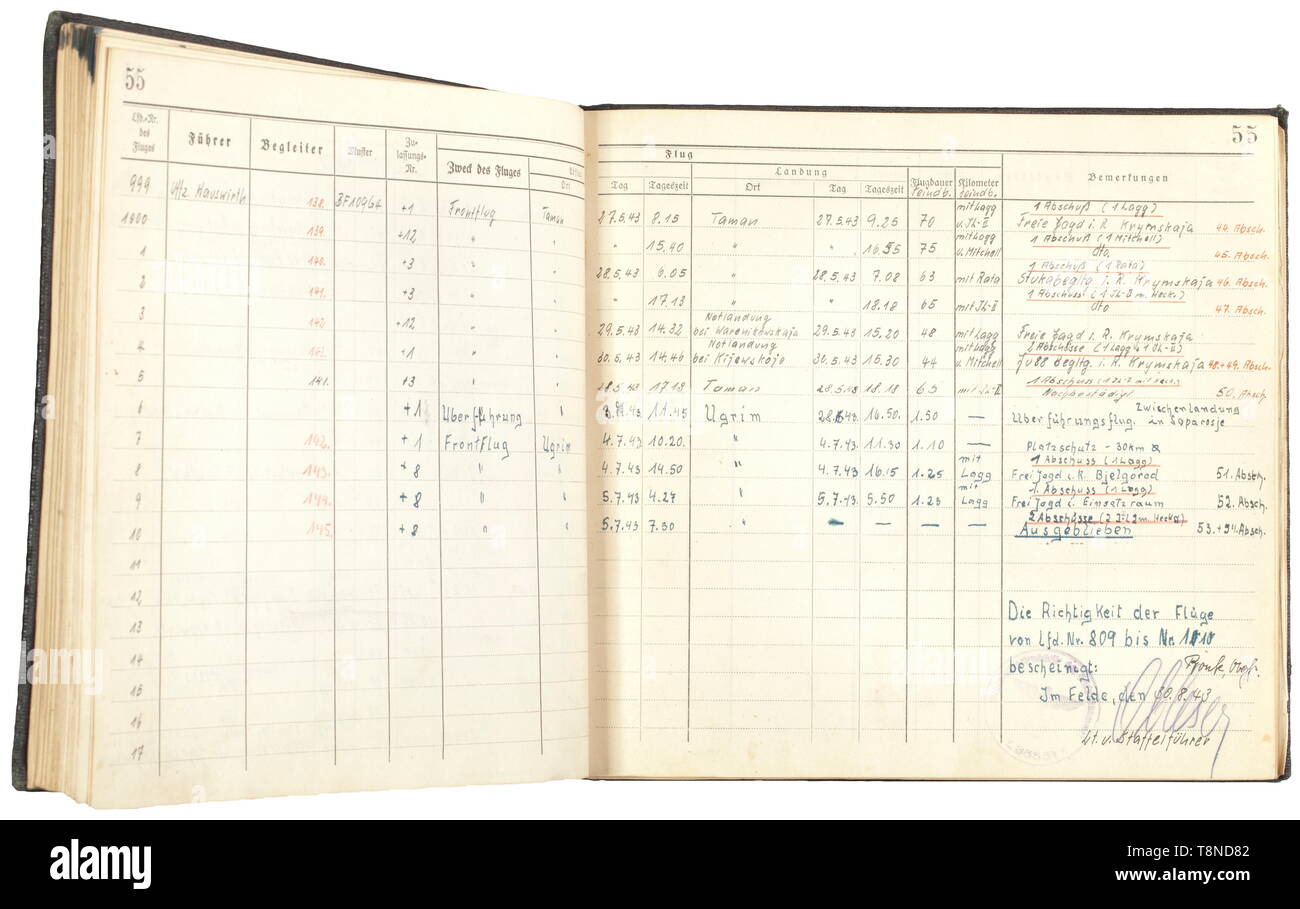 55
Lfd.-Nr. des Fluges Führer Begleiter Muster Zulassungs-Nr. Zweck des Fluges Ort
999 Uffz. Hauswirth 138. BF109G4 +1 Frontflug Taman
1000 139. +12 " "
1 140. +3 " "
2 141. +3 " "
3 142 +12 " "
4 +1 " "
5 141. +3 " "
6 +1 Überführung "
7 142. +1 Frontflug Ugrim
8 143. +8 " "
9 144. +8 " "
10 145. +8 " "
11
12
13
14
15
16
17
55
Flug
Landung
Tag Tageszeit Ort Tag Tageszeit Flugdauer Kilometer Bemerkungen
feindb. feindb.
mit Lagg 1 Abschuß (1 Lagg)
27.5.43 8.15 Taman 27.5.43 9.25 70 u. JL-II Freie Jagd i. R. Krymskaja 44. Absch.
mit Lagg 1 Abschuß (1 Mitchell)
" 15.40 " " 16.55 75 u. Mitchell dto. 45. Absch.
1 Abschuß (1 Rata)
28.5.43 6.05 " 28.5.43 7.08 63 mit Rata Stukabegltg i. R. Krymskaja 46. Absch.
1 Abschuss (1 JL-II m. Heck.)
" 17.13 " " 18.18 65 mit JL-II dto 47. Absch.
Notlandung
29.5.43 14.32 bei Warenikowskaja 29.5.43 15.20 48 mit Lagg Freie Jagd i. R. Krymskaja
Notlandung mit Lagg 2 Abschüsse (1 Lagg u 1 JL-II)
30.5.43 14.46 bei Kijewskoje 30.5.43 15.30 44 u. Mitchell Ju88 Begltg. i. R. Krymskaja 48+49. Absch.
1 Abschuss
28.5.43 17.13 Taman 28.5.43 18.18 65 mit JL-II 50. Absch.
Zwischenlandung
11.45 Ugrim 16.50. 1.50 — Überführungsflug. in Saparosje
4.7.43 10.20. " 4.7.43. 11.30 1.10 — Platzschutz - 30km
mit 1 Abschuss (1 Lagg)
4.7.43 14.50 " 4.7.43 16.15 1.25 Lagg Frei Jagd i. R. Bjelgorod 51. Absch.
mit 1. Abschuss (1 Lagg)
5.7.43 4.27 " 5.7.43. 5.50 1.23 Lagg Frei Jagd i. Einsatzraum 52. Absch.
2 Abschüsse (2 JL2 m. Heck)
5.7.43 7.30 " — — — — Ausgeblieben 53.+54. Absch.
Die Richtigkeit der Flüge
von Lfd. Nr. 809 bis Nr. 1010
bescheinigt:
Im Felde, den 30.8.43
Lt. u. Staffelführer
alamy
alamy
Image ID: T8ND82
www.alamy.com